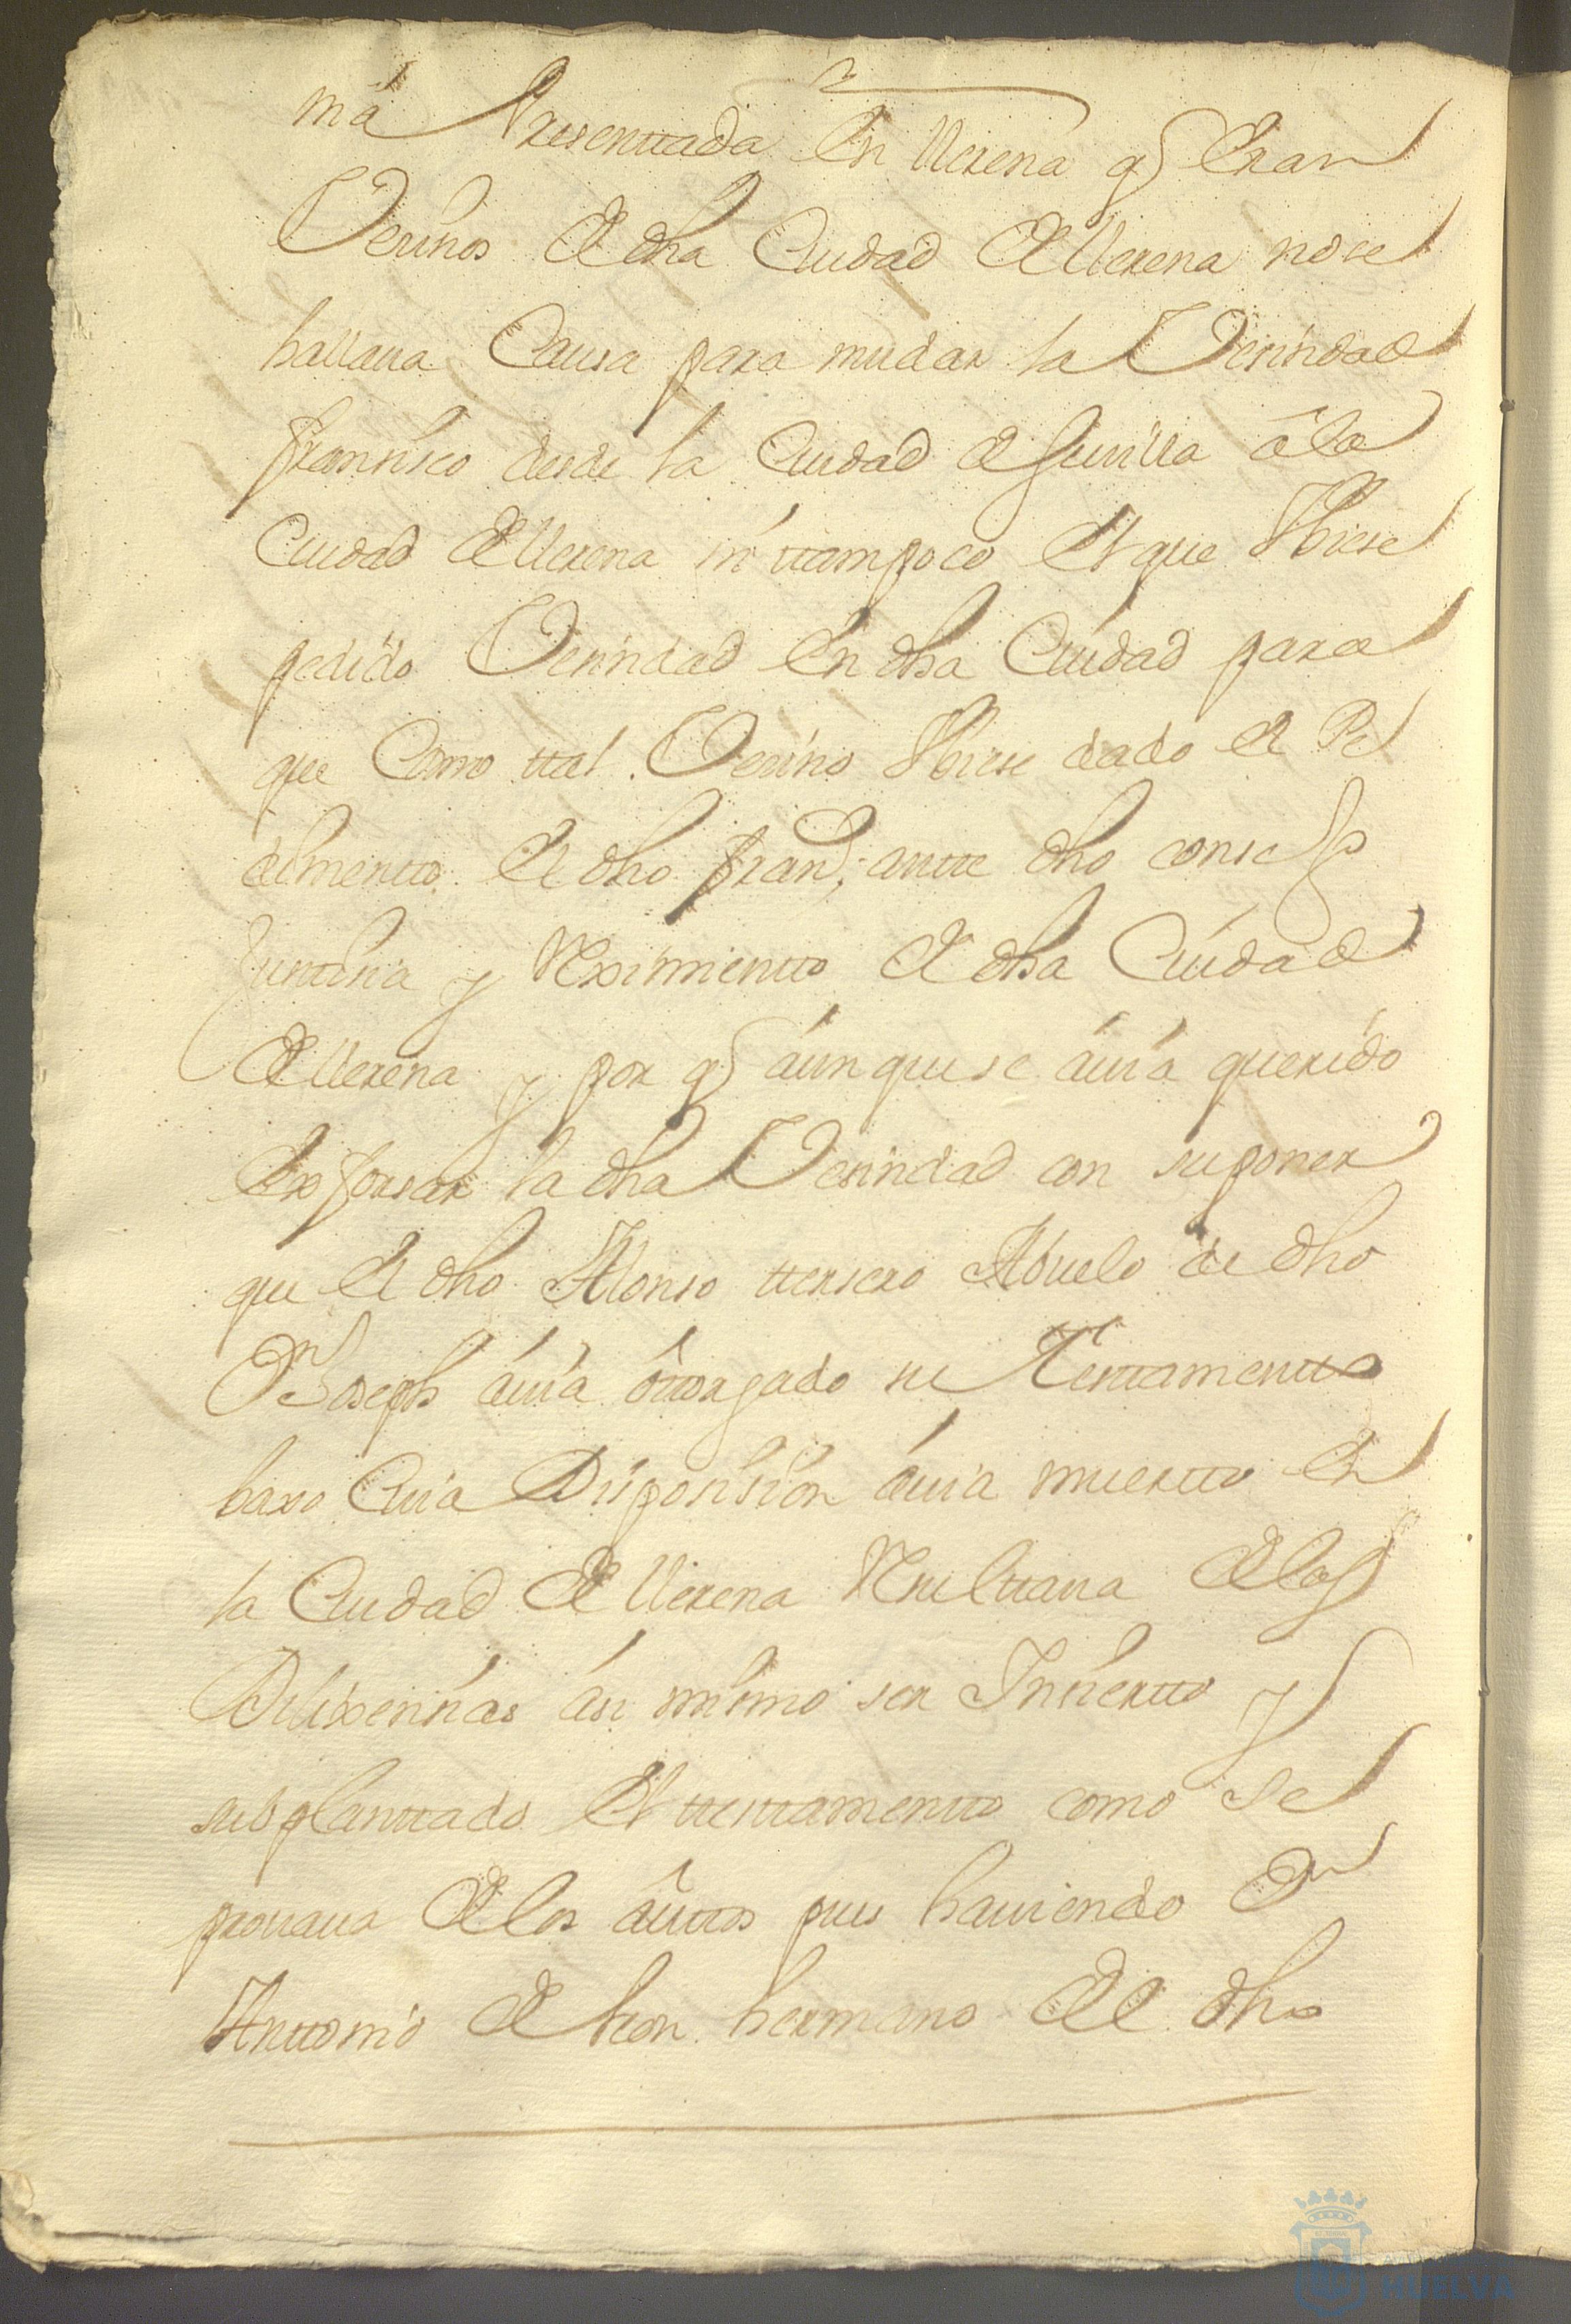 ma Presenttada En llerena q̃ Eran
Vesinos de dha Ciudad de llerena no se
hallaua Causa para mudar la Vesindad
fransisco desde la Ciudad de seuilla â la
Ciudad de llerena ni ttampoco El que Vbiese
pedido Vesindad En dha Ciudad para
que Como ttal Vesino Vbiese dado el Pe
dimentto el dho fran.co antte dho conse jo
Justisia y Reximientto de dha Ciudad
de llerena y por q̃ áunque se áuia querido
Exforsar la dha Vesindad con suponer
que el dho Alonso ttersero Abuelo de dho
Dn Joseph áuia ôttorgado su Testtamentto
baxo Cuia Disposision áuia muertto en
la Ciudad de llerena Resulttaua de las
Dilixensias ási mismo ser Insiertto y
subplanttado El ttesttamentto como se
prouaua de los âuttos pues hauiendo Dn
Anttonio de leon hermano de el dho
HUELVA